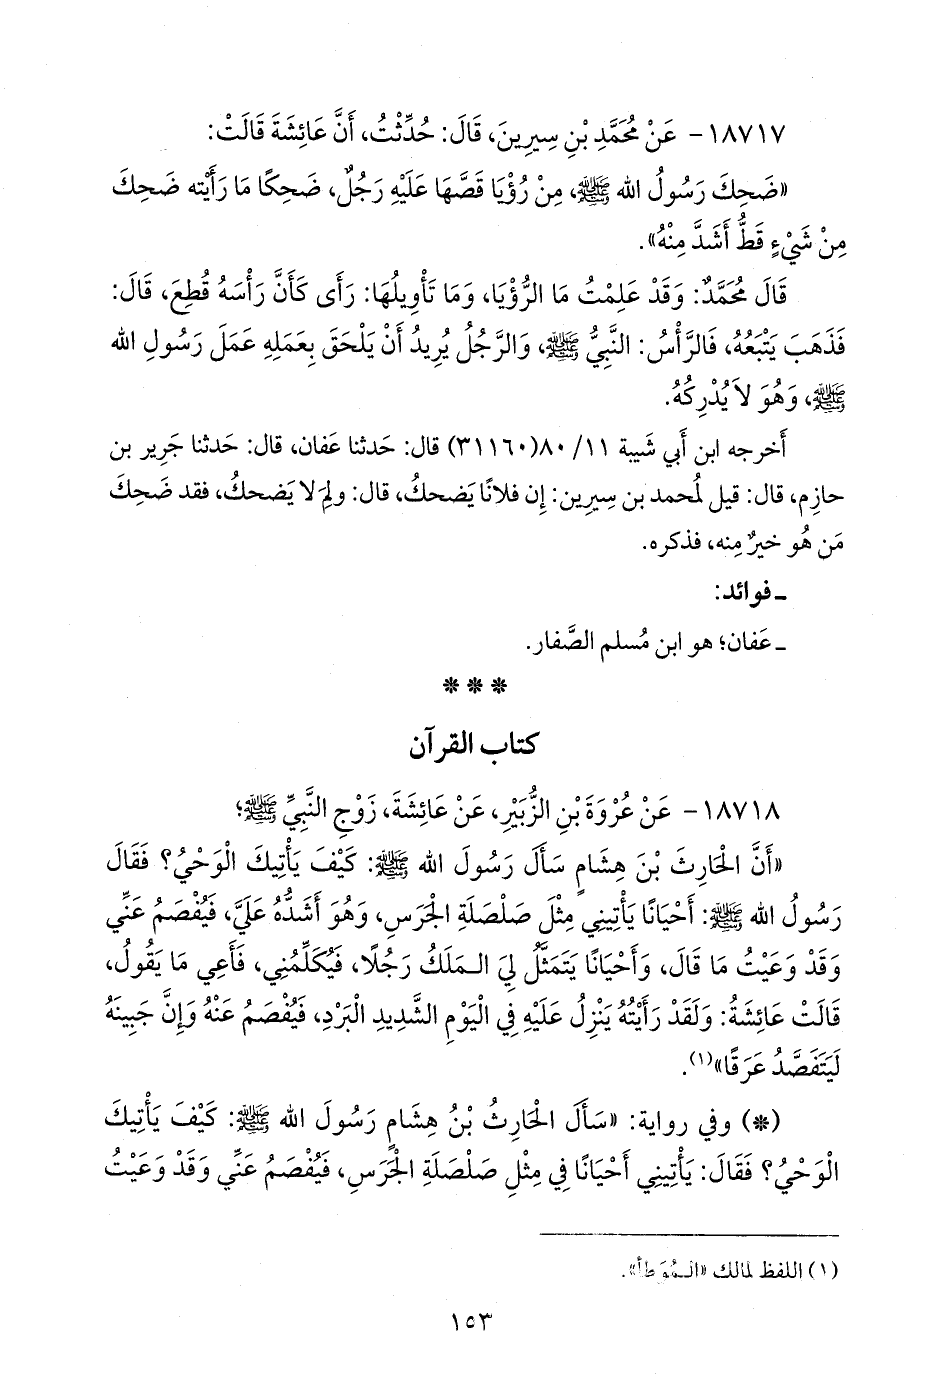 ١٨٧١٧- عَنْ مُحَمَّدِ بْنِ سِيرِينَ، قَالَ: حُدِّثْتُ، أَنَّ عَائِشَةَ قَالَتْ:
«ضَحِكَ رَسُولُ الله ﷺ، مِنْ رُؤْيَا قَصَّهَا عَلَيْهِ رَجُلٌ، ضَحِكًا مَا رَأَيْته ضَحِكَ
مِنْ شَيْءٍ قَطُّ أَشَدَّ مِنْهُ».
قَالَ مُحَمَّدٌ: وَقَدْ عَلِمْتُ مَا الرُّؤْيَا، وَمَا تَأْوِيلُهَا: رَأَى كَأَنَّ رَأْسَهُ قُطِعَ، قَالَ:
فَذَهَبَ يَتْبَعُهُ، فَالرَّأْسُ: النَّبِيُّ ﷺ، وَالرَّجُلُ يُرِيدُ أَنْ يَلْحَقَ بِعَمَلِهِ عَمَلَ رَسُولِ الله
ﷺ، وَهُوَ لَا يُدْرِكُهُ.
أَخرجه ابن أَبي شَيبة ١١/ ٨٠(٣١١٦٠) قال: حَدثنا عَفان، قال: حَدثنا جَرِير بن
حازِم، قال: قيل لمُحمد بن سِيرِين: إِن فلانًا يَضحكُ، قال: ولِمَ لا يَضحكُ، فقد ضَحِكَ
مَن هُو خيرٌ مِنه، فذكره.
ـ فوائد:
ـ عَفان؛ هو ابن مُسلم الصَّفار.
* * *
كتاب القرآن
١٨٧١٨- عَنْ عُرْوَةَ بْنِ الزُّبَيْرِ، عَنْ عَائِشَةَ، زَوْجِ النَّبِيِّ ﷺ؛
«أَنَّ الْحَارِثَ بْنَ هِشَامٍ سَأَلَ رَسُولَ الله ﷺ: كَيْفَ يَأْتِيكَ الْوَحْيُ؟ فَقَالَ
رَسُولُ الله ﷺ: أَحْيَانًا يَأْتِينِي مِثْلَ صَلْصَلَةِ الْجَرَسِ، وَهُوَ أَشَدُّهُ عَلَيَّ، فَيُفْصَمُ عَنِّي
وَقَدْ وَعَيْتُ مَا قَالَ، وَأَحْيَانًا يَتَمَثَّلُ لِيَ الْمَلَكُ رَجُلًا، فَيُكَلِّمُنِي، فَأَعِي مَا يَقُولُ،
قَالَتْ عَائِشَةُ: وَلَقَدْ رَأَيْتُهُ يَنْزِلُ عَلَيْهِ فِي الْيَوْمِ الشَّدِيدِ الْبَرْدِ، فَيُفْصَمُ عَنْهُ وَإِنَّ جَبِينَهُ
لَيَتَفَصَّدُ عَرَقًا»(١).
(*) وفي رواية: «سَأَلَ الْحَارِثُ بْنُ هِشَامٍ رَسُولَ الله ﷺ: كَيْفَ يَأْتِيكَ
الْوَحْيُ؟ فَقَالَ: يَأْتِينِي أَحْيَانًا فِي مِثْلِ صَلْصَلَةِ الْجَرَسِ، فَيُفْصَمُ عَنِّي وَقَدْ وَعَيْتُ
(١) اللفظ لمالك «المُوَطأ».
١٥٣